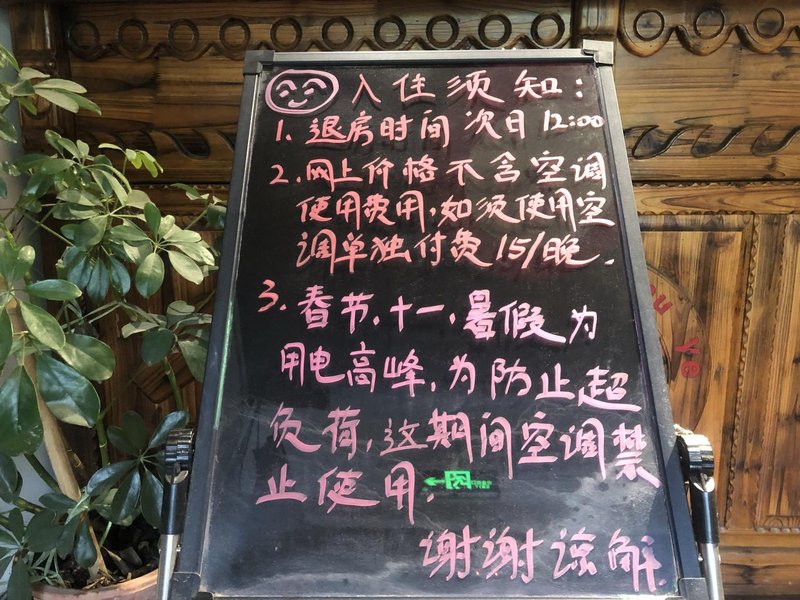 入住须知：
1. 退房时间 次日 12:00
2. 网上价格不含空调
使用费用，如须使用空
调单独付费 15/晚.
3. 春节、十一、暑假为
用电高峰，为防止超
负荷，这期间空调禁
止使用.
谢谢谅解.